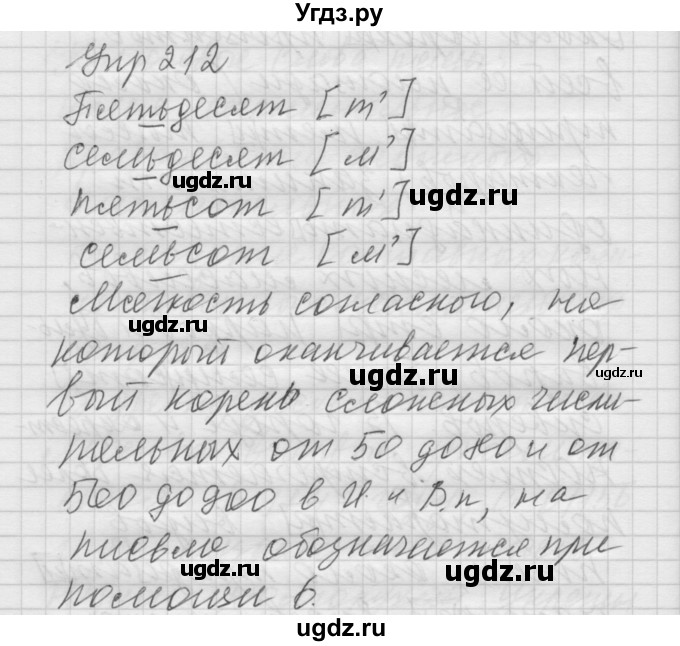 Угдз.ру
Упр 212
Пятьдесят [т']
семьдесят [м']
ugdz.ru
ugdz.ru
пятьсот [т']
семьсот [м']
Мягкость согласного, на
ugdz.ru
который оканчивается пер-
ugdz.ru
ugdz.ru
вый корень сложных числи-
ugdz.ru
тельных от 50 до 80 и от
500 до 900 в И. и В.п, на
письме обозначается при
ugdz.ru
ugdz.ru
помощи ь.
ugdz.ru